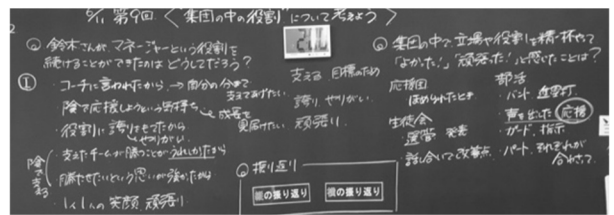 6/11 第9回 〈"集団の中の役割"について考えよう〉
Q 鈴木さんが、マネージャーという役割を
続けることができたのはどうしてだろう?
・コーチに言われたから → 自分の分まで
支えてあげたい
陰で応援しようという気持ち
成長を
見届けたい
・役割に誇りをもてたから
やりがい
・支えたチームが勝つことがうれしかったから
勝たせたいという思いが強かったから
・1人1人の笑顔 頑張り
陰で支える
支える 目標のため
誇り やりがい
頑張り
Q 振り返り
個の振り返り
Q 集団の中で、立場や役割を精一杯やって
「よかった!」「頑張った!」と感じたことは?
応援団
ほめられたとき
生徒会
運営 発表
・話し合いで改善点
部活
・バント
声を出した 応援
・ガード 指示
・パート それぞれが
合わさって